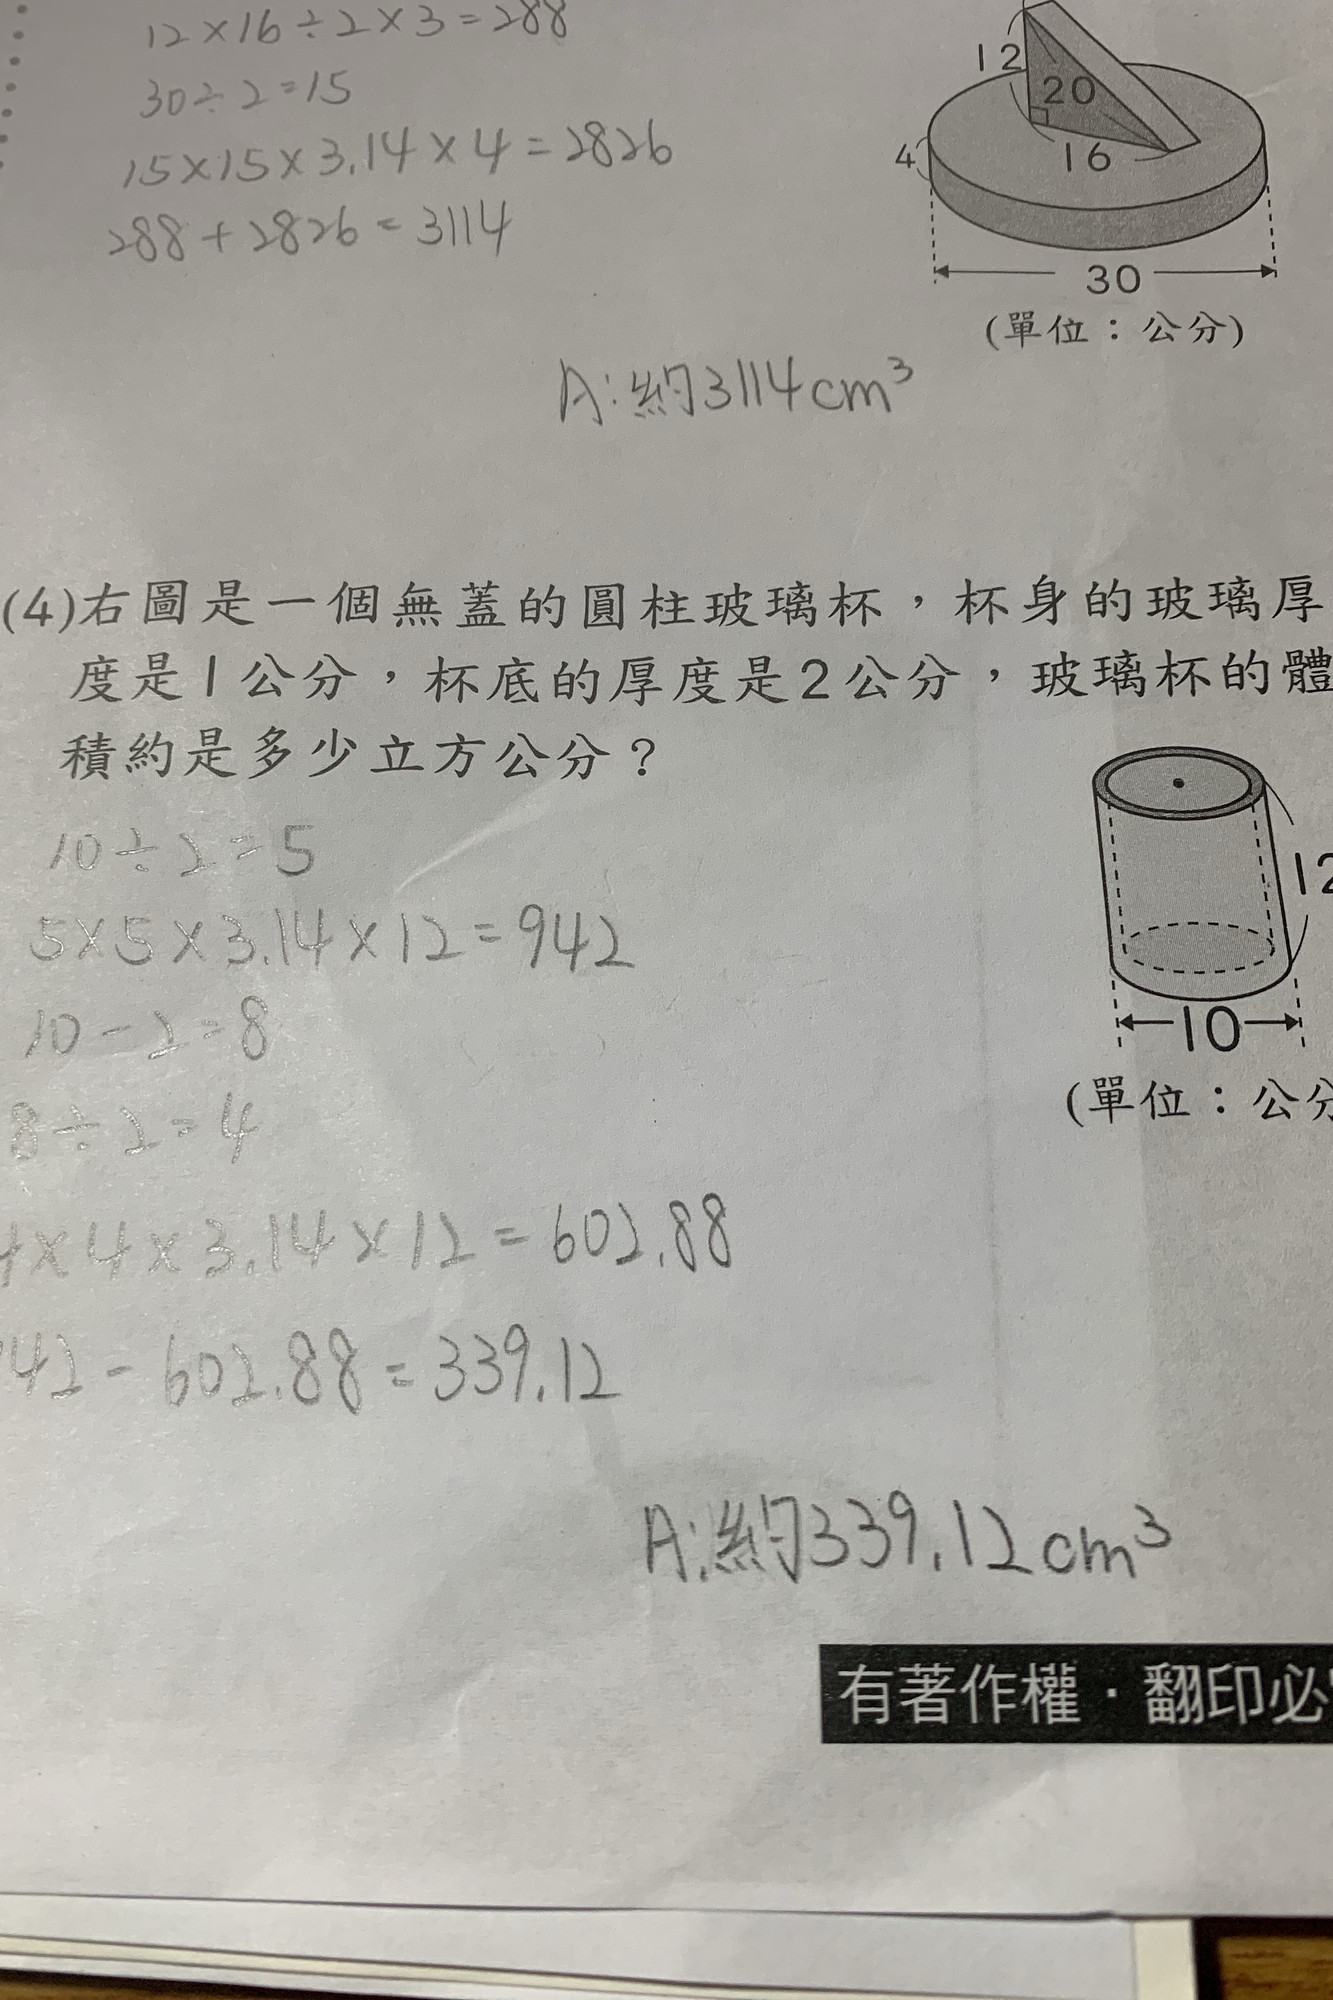 12×16÷2×3=288
30÷2=15
15×15×3.14×4=2826
288+2826=3114
12
20
16
4
30
(單位：公分)
A:約3114cm³
(4)右圖是一個無蓋的圓柱玻璃杯，杯身的玻璃厚
度是1公分，杯底的厚度是2公分，玻璃杯的體
積約是多少立方公分？
12
10
(單位：公分
10÷2=5
5×5×3.14×12=942
10-2=8
8÷2=4
4×4×3.14×12=602.88
942-602.88=339.12
A:約339.12cm³
有著作權·翻印必